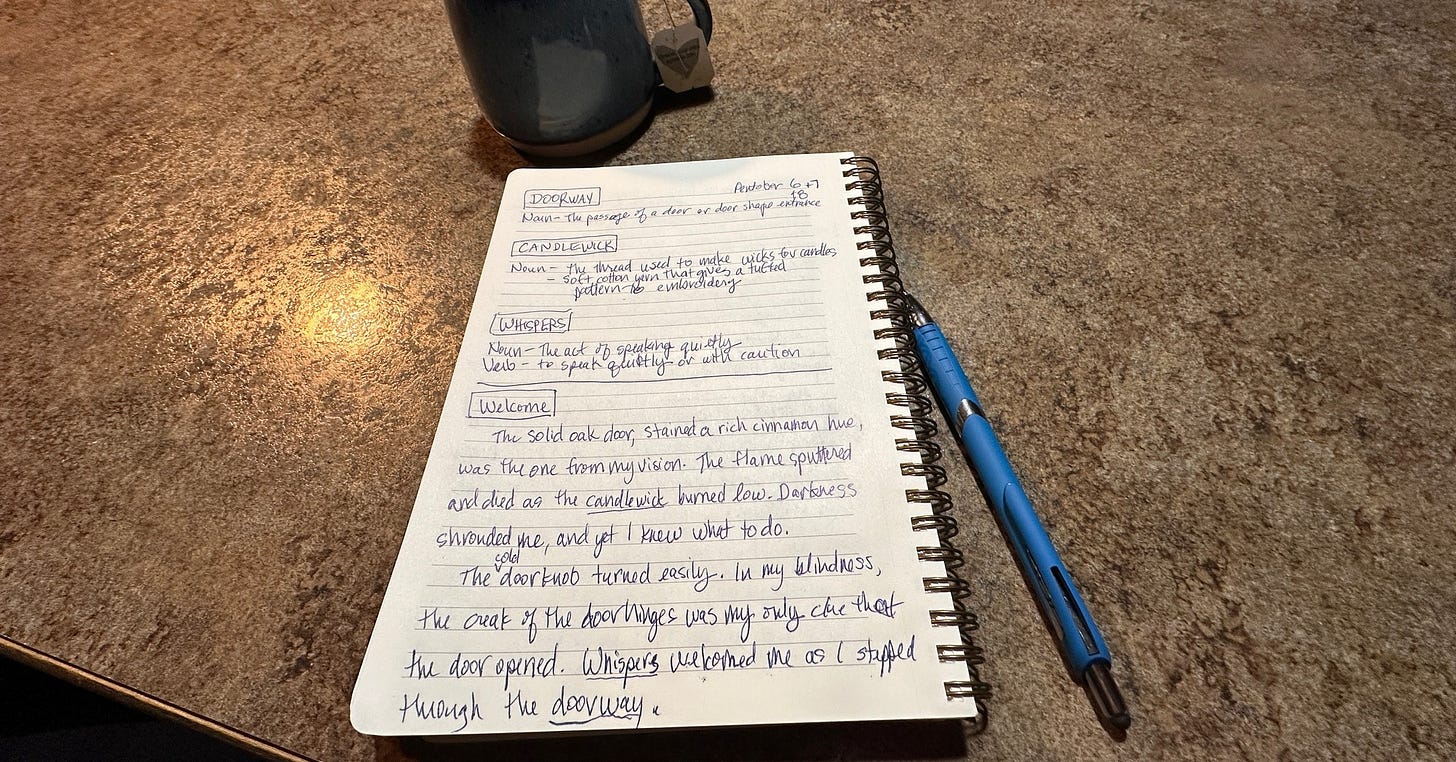 DOORWAY
Pentober 6+7
+8
Noun - The passage of a door or door shape entrance
CANDLEWICK
Noun - the thread used to make wicks for candles
- Soft cotton yarn that gives a tufted
pattern to embroidery
WHISPERS
Noun - The act of speaking quietly
Verb - to speak quietly or with caution
Welcome
The solid oak door, stained a rich cinnamon hue,
was the one from my vision. The flame sputtered
and died as the candlewick burned low. Darkness
shrouded me, and yet I knew what to do.
cold
The doorknob turned easily. In my blindness,
the creak of the door hinges was my only clue that
the door opened. Whispers welcomed me as I stepped
through the doorway.